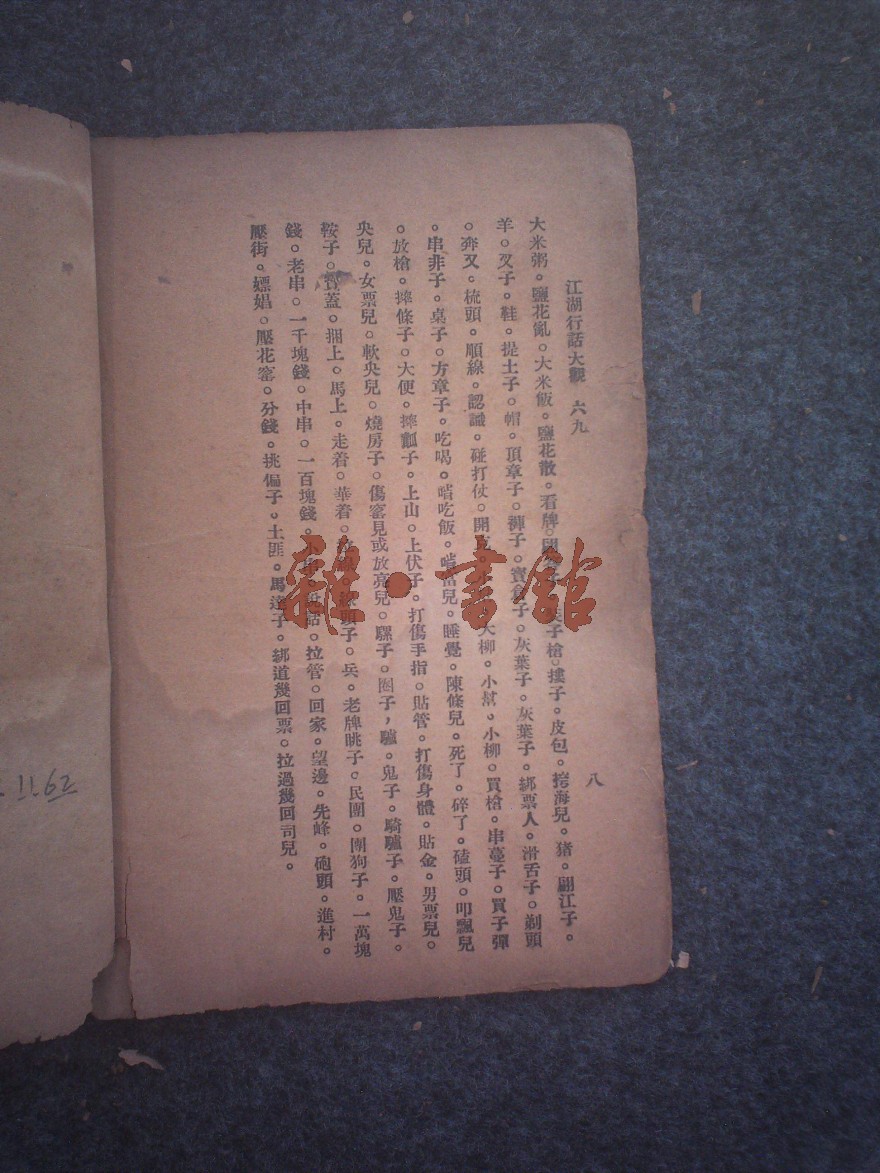 江湖行話大觀 六九 八
大米粥。鹽花亂。大米飯。鹽花散。看牌。子槍。撲子。皮包。挎海兒。猪。翩江子。
羊。叉子。鞋。提土子。帽。頂章子。褲子。子。灰葉子。灰葉子。綁票人。滑舌子。剃頭
。奔叉。梳頭。順線。認識。碰打仗。開大柳。小幫。小柳。買槍。串蔓子。買子彈
。串非子。桌子。方章子。吃喝。啃吃飯。啃兒。睡覺。陳條兒。死了。碎了。磕頭。叩飄兒
。放槍。摔條子。大便。摔瓤子。上山。上伏子。打傷手指。貼管。打傷身體。貼金。男票兒。
央兒。女票兒。軟央兒。燒房子。傷窰見或放亮兒。騾子。圈子，驢。鬼子。騎驢子。壓鬼子。
鞍子。蓋。捆上。馬上。走着。華着。頭子。兵。老牌眺子。民團。團狗子。一萬塊
錢。老串。一千塊錢。中串。一百塊錢。拉管。回家。望邊。先峰。砲頭。進村。
壓街。嫖娼。壓花窰。分錢。挑偏子。土匪。馬達子。綁道幾回票。拉過幾回司兒。
雜·書館
11.62